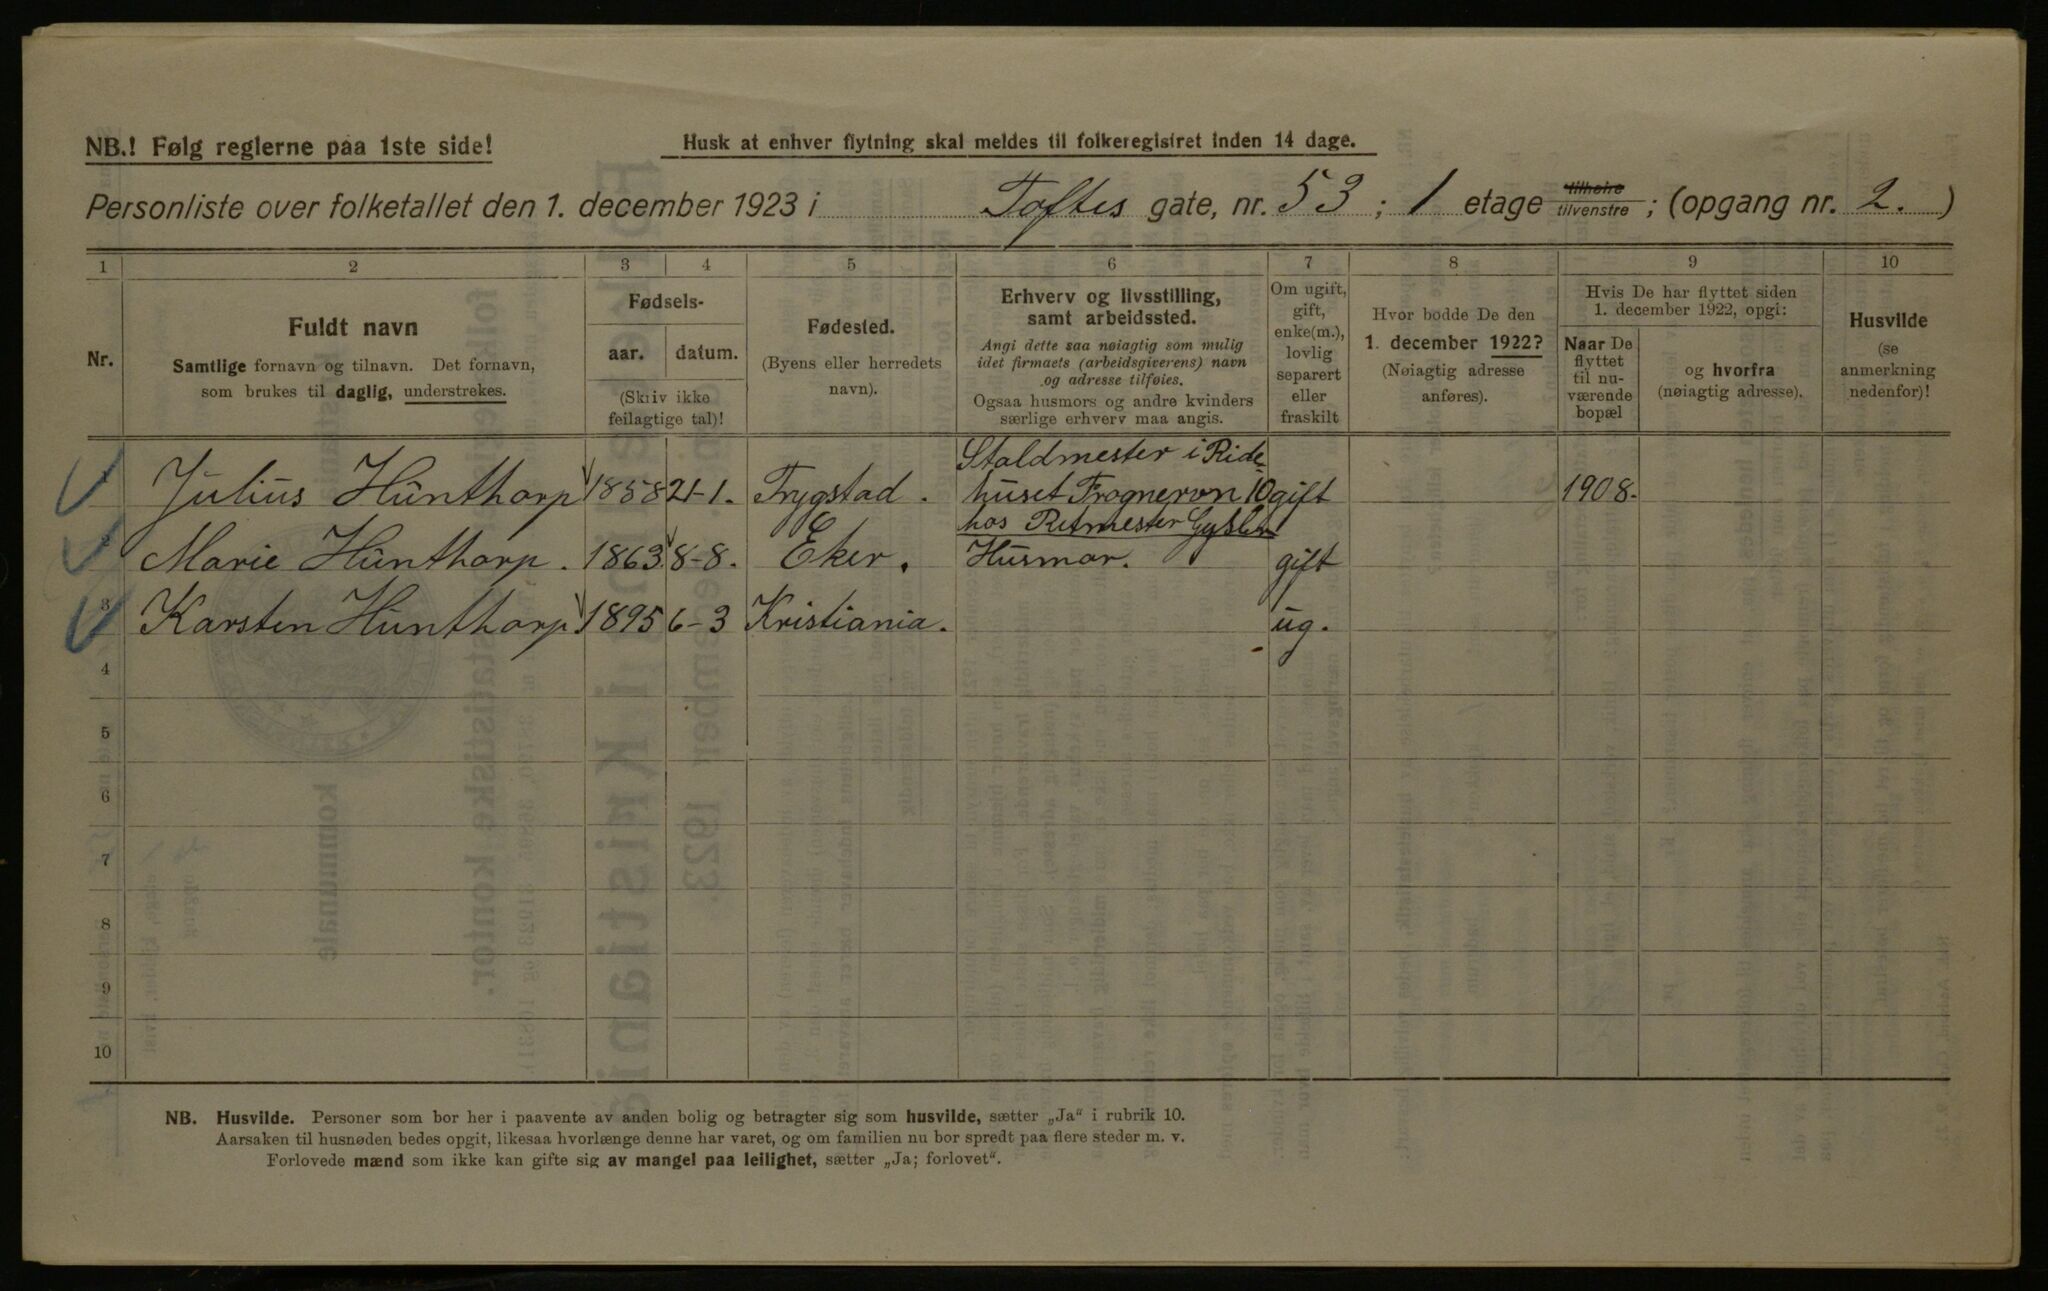 NB.! Følg reglerne paa 1ste side!
Husk at enhver flytning skal meldes til folkeregistret inden 14 dage.
Personliste over folketallet den 1. december 1923 i Toftes gate, nr. 53 ; 1 etage tilhøire tilvenstre ; (opgang nr. 2. )
1 2 3 4 5 6 7 8 9 10
Nr.
Fuldt navn
Samtlige fornavn og tilnavn. Det fornavn,
som brukes til daglig, understrekes.
Fødsels-
aar. datum.
(Skriv ikke
feilagtige tal)!
Fødested.
(Byens eller herredets
navn).
Erhverv og livsstilling,
samt arbeidssted.
Angi dette saa nøiagtig som mulig
idet firmaets (arbeidsgiverens) navn
og adresse tilføies.
Ogsaa husmors og andre kvinders
særlige erhverv maa angis.
Om ugift,
gift,
enke(m.),
lovlig
separert
eller
fraskilt
Hvor bodde De den
1. december 1922?
(Nøiagtig adresse
anføres).
Hvis De har flyttet siden
1. december 1922, opgi:
Naar De
flyttet
til nu-
værende
bopæl
og hvorfra
(nøiagtig adresse).
Husvilde
(se
anmerkning
nedenfor)!
Staldmester i Ride-
1 Julius Hünthorp 1858 21-1. Trygstad. huset Frognervn 10 gift 1908.
hos Ritmester
2 Marie Hünthorp. 1863 8-8. Eker. Husmor. gift
3 Karsten Hünthorp. 1895 6-3 Kristiania. ug.
4
5
6
7
8
9
10
NB. Husvilde. Personer som bor her i paavente av anden bolig og betragter sig som husvilde, sætter „Ja“ i rubrik 10.
Aarsaken til husnøden bedes opgit, likesaa hvorlænge denne har varet, og om familien nu bor spredt paa flere steder m. v.
Forlovede mænd som ikke kan gifte sig av mangel paa leilighet, sætter „Ja; forlovet“.